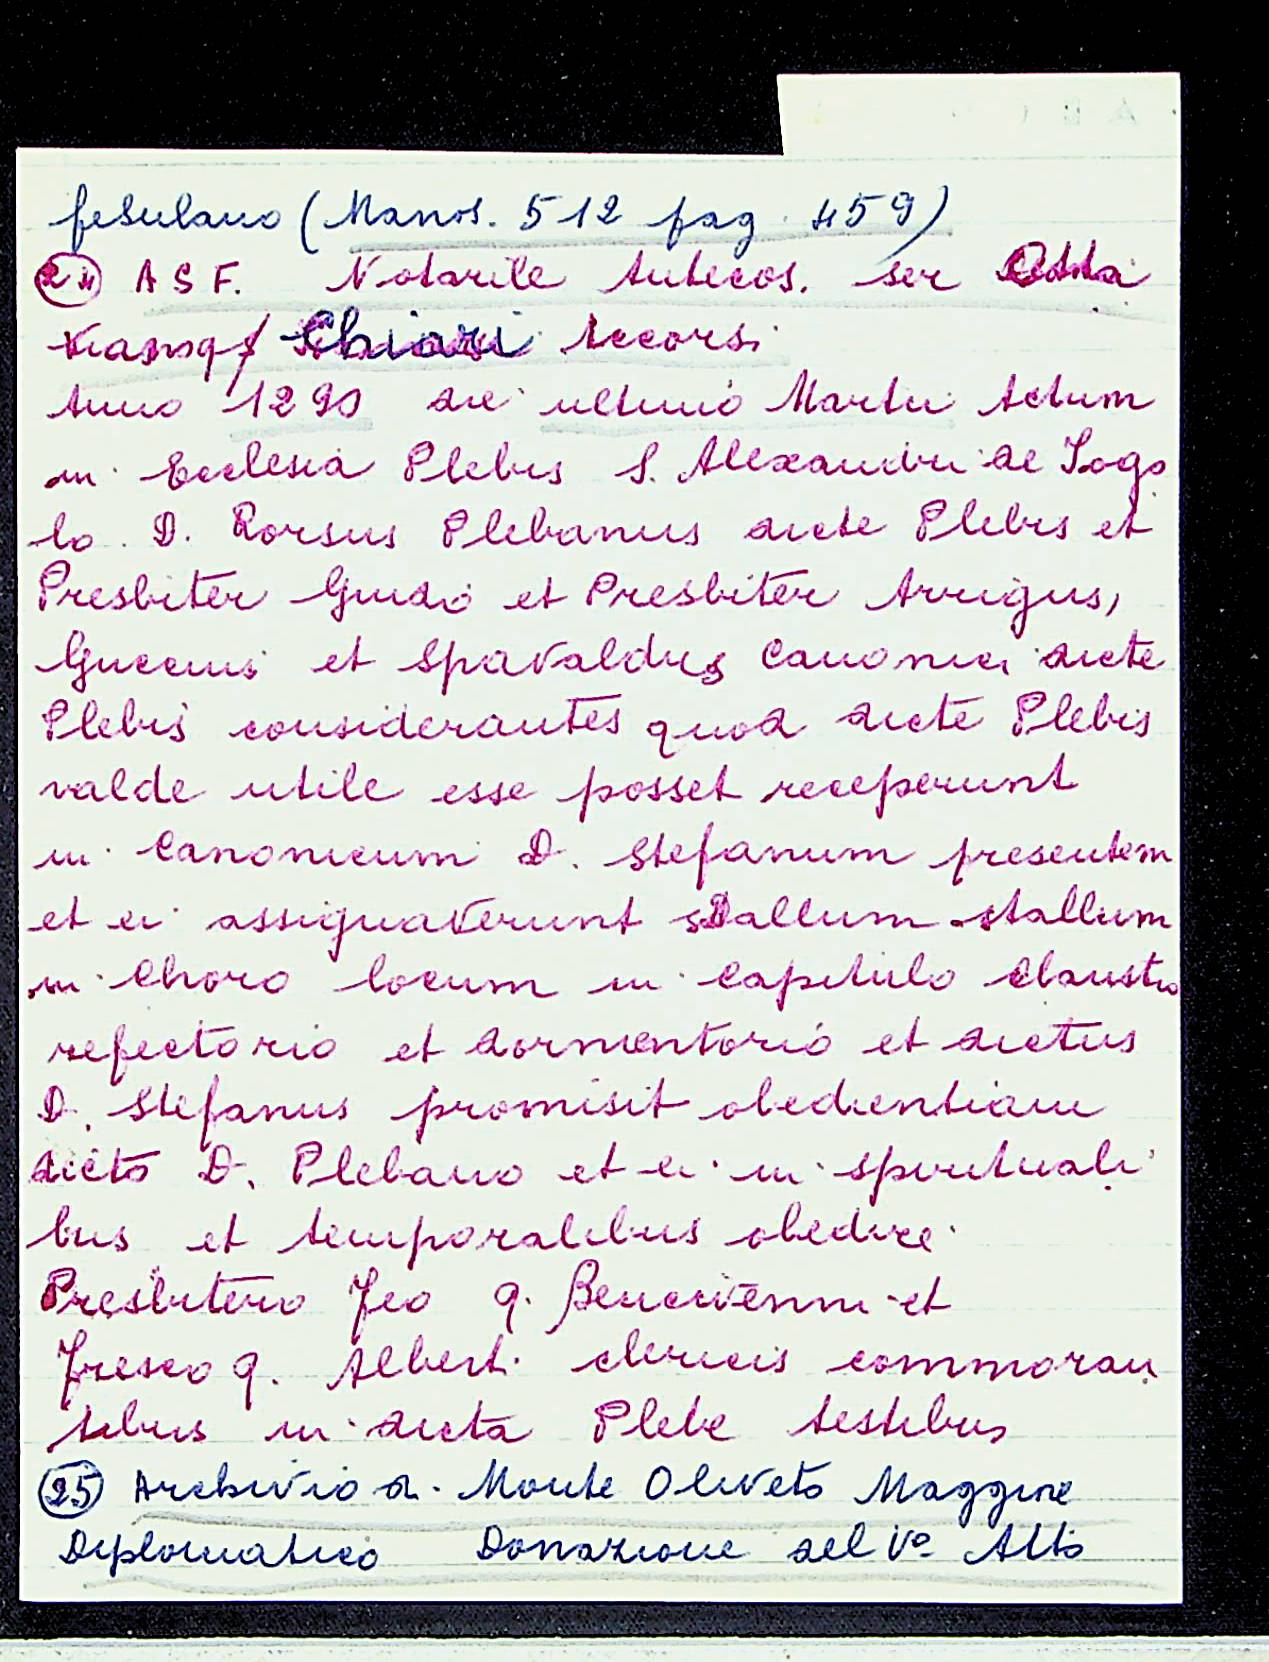 fesulano (Manos. 512 pag. 459)
(24) A S F. Notarile Antecos. ser
Chiari Accorsi
Anno 1290 die ultimo Martii Actum
in Ecclesia Plebis S. Alexandri de Sogo
lo. D. Rorsus Plebanus dicte Plebis et
Presbiter Guido et Presbiter Arrigus,
Guccius et Spavaldus Canonici dicte
Plebis considerantes quod dicte Plebis
valde utile esse posset receperunt
in Canonicum D. Stefanum presentem
et ei assignaverunt stallum
in Choro locum in Capitulo Claustro
refectorio et dormentorio et dictus
D. Stefanus promisit obedientiam
dicto D. Plebano et ei in spirituali
bus et temporalibus obedire
Presbitero Feo q. Bencivenni et
Fresco q. Albert. clericis commoran
tibus in dicta Plebe testibus
(25) Archivio di Monte Oliveto Maggiore
Diplomatico Donazione del Vo Alto